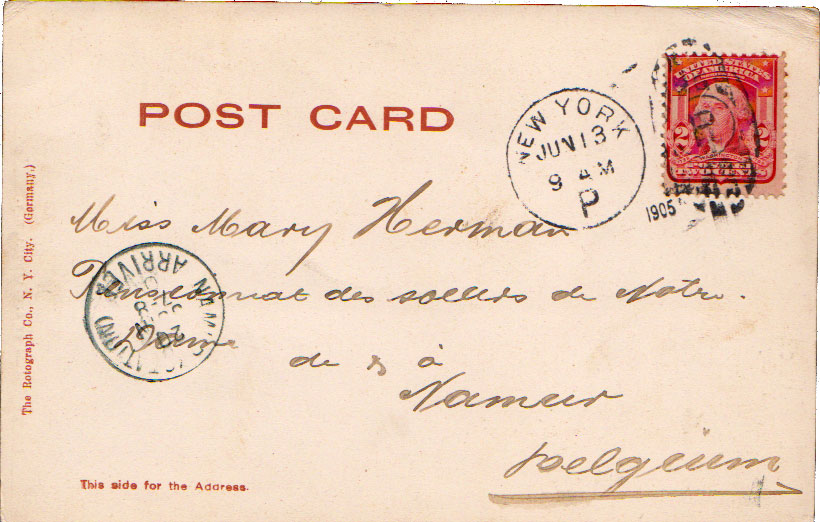 POST CARD
NEW YORK
JUN 13
9 AM
P
1905
UNITED STATES
OF AMERICA
2 2
Miss Mary Herman
Pensionnat des sollers de Notre.
Dame de à
Namur
belgium
NAMUR (STATION)
ARRIVEE
The Rotograph Co., N. Y. City. (Germany.)
This side for the Address.